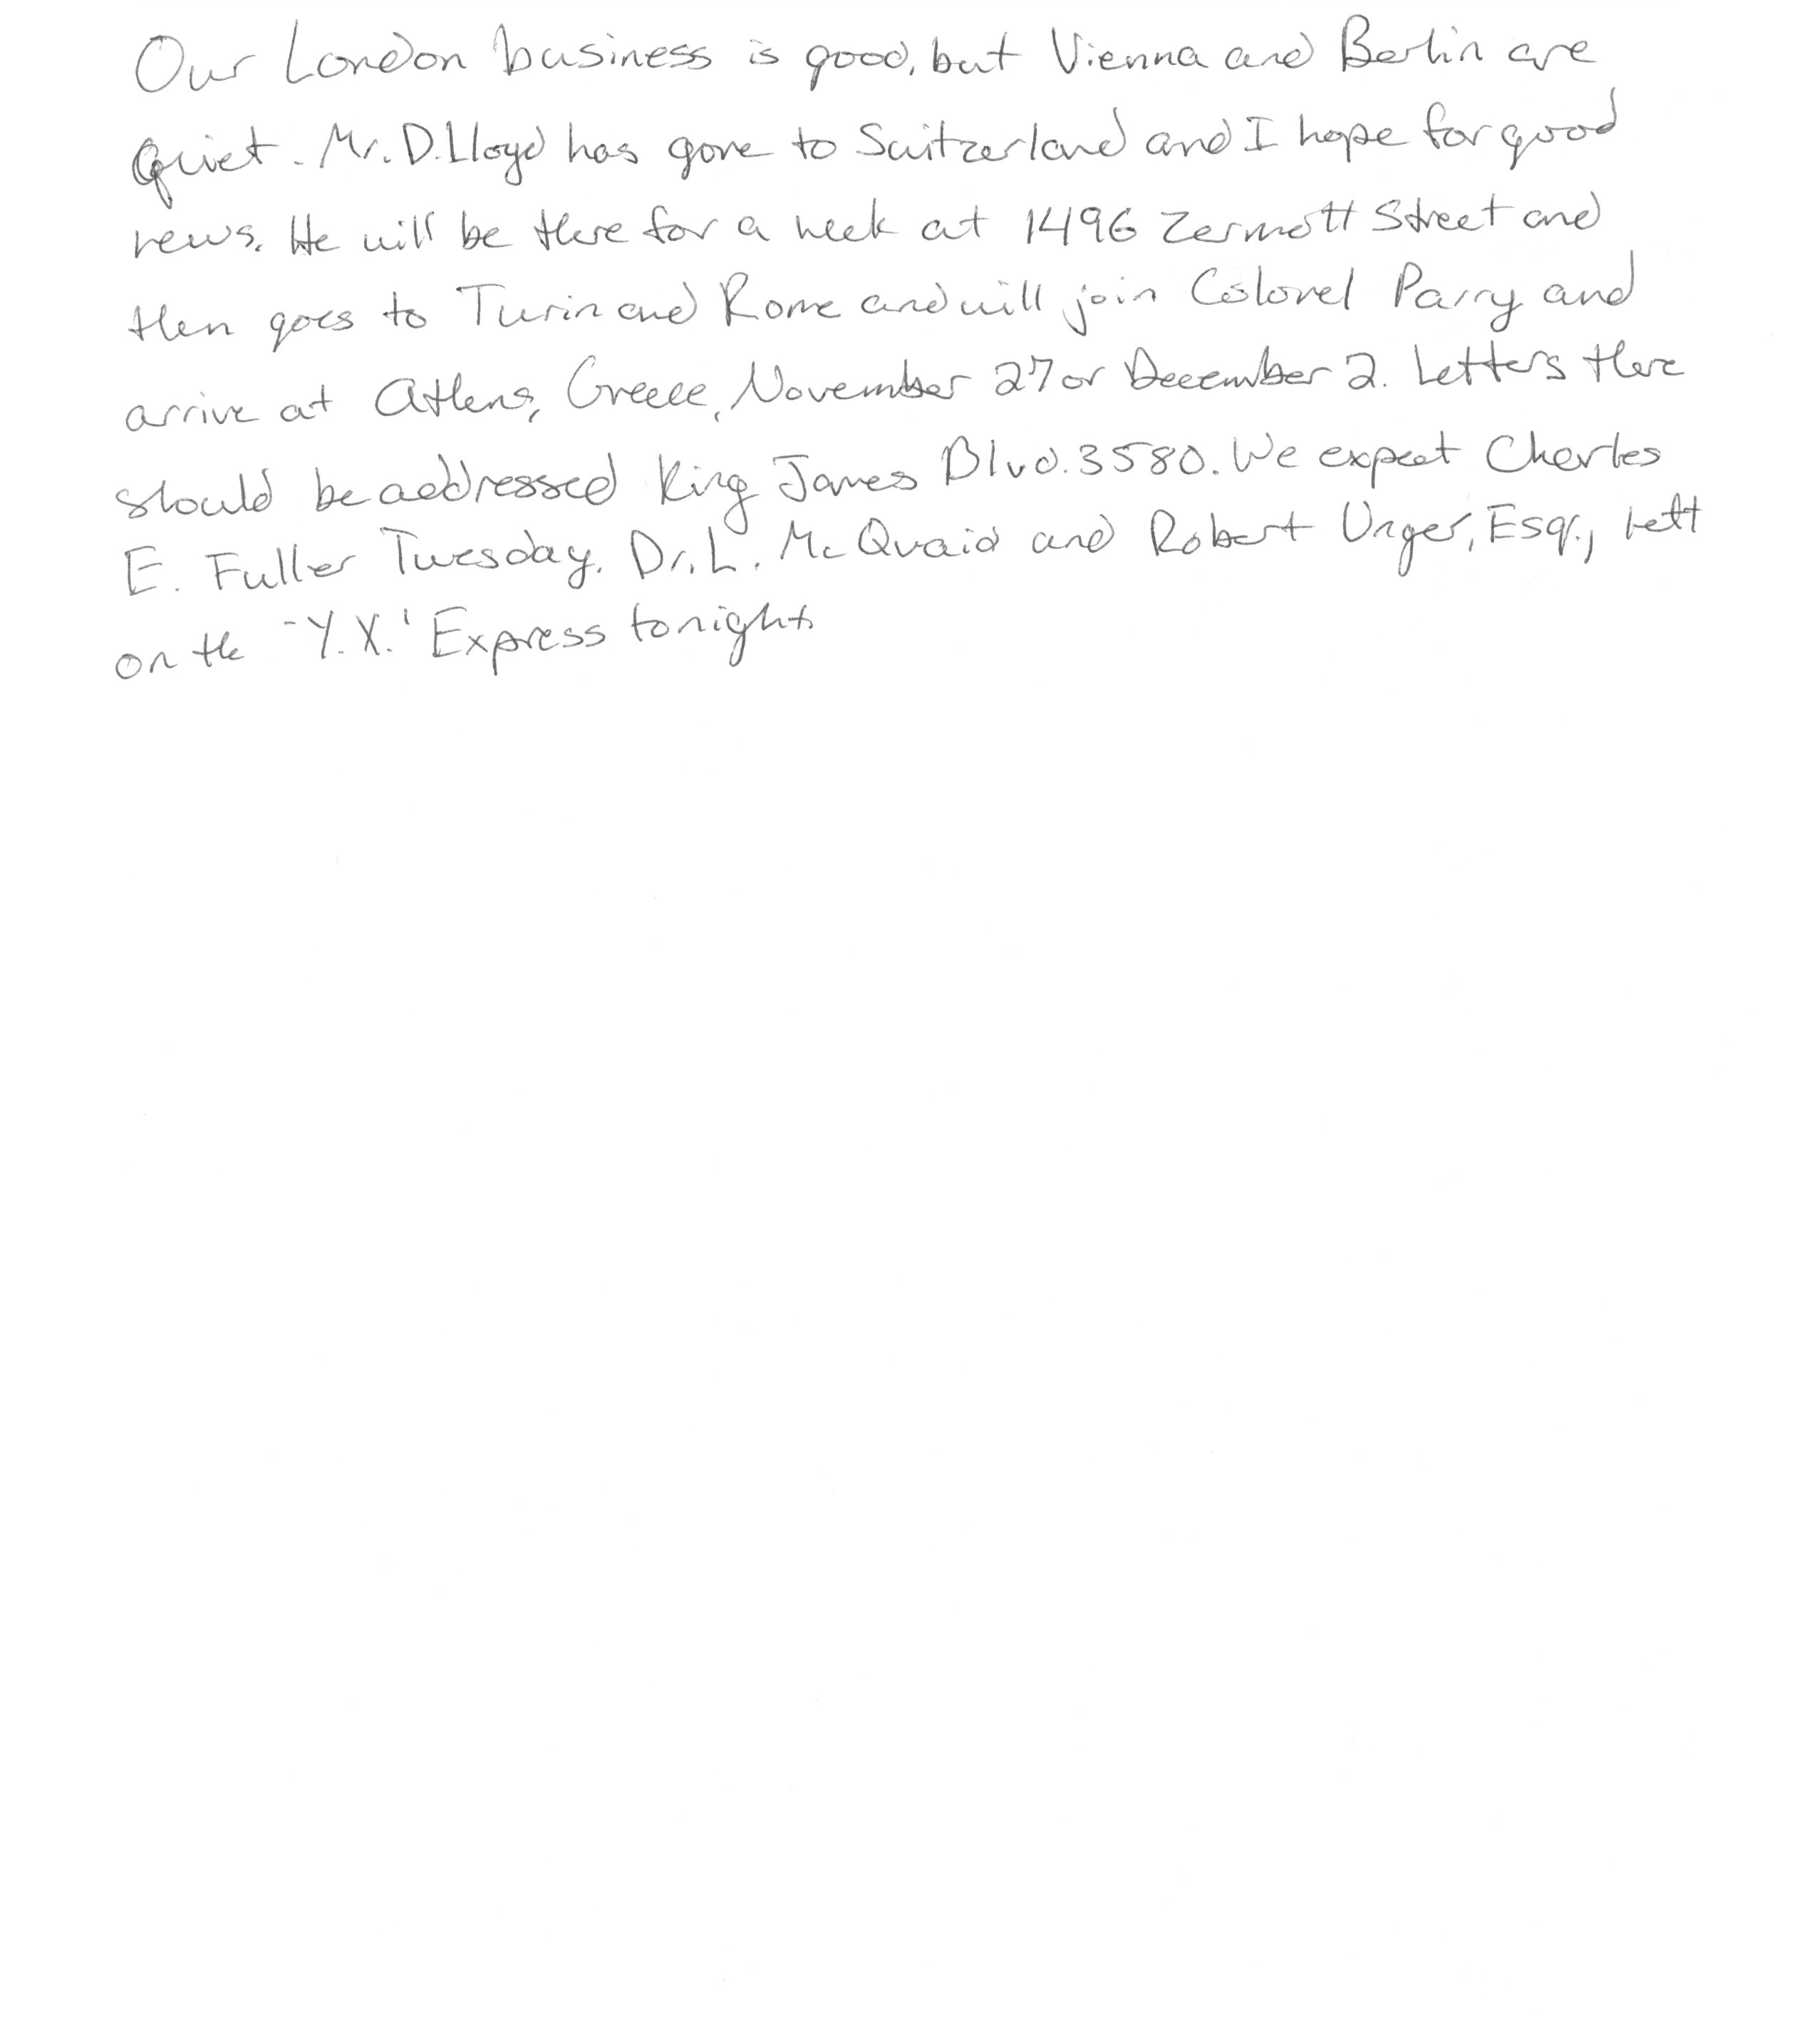 Our London business is good, but Vienna and Berlin are
quiet. Mr. D. Lloyd has gone to Switzerland and I hope for good
news. He will be there for a week at 1496 Zermott Street and
then goes to Turin and Rome and will join Colonel Parry and
arrive at Athens, Greece, November 27 or December 2. Letters there
should be addressed King James Blvd. 3580. We expect Charles
E. Fuller Tuesday. Dr. L. McQuaid and Robert Unger, Esq., left
on the "Y.X." Express tonight.